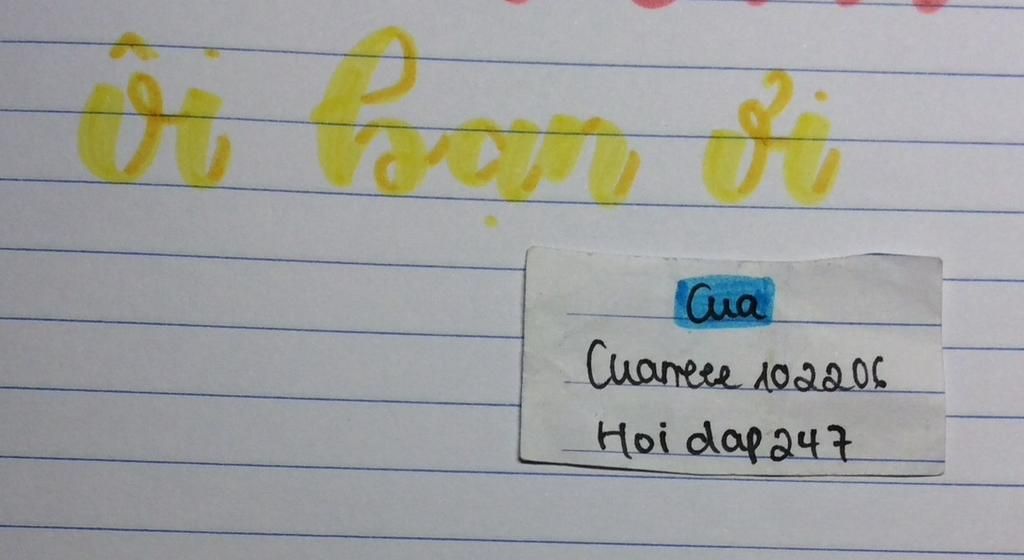 ôi bạn ơi
Cua
Cuarreee 102206
Hoi dap 247